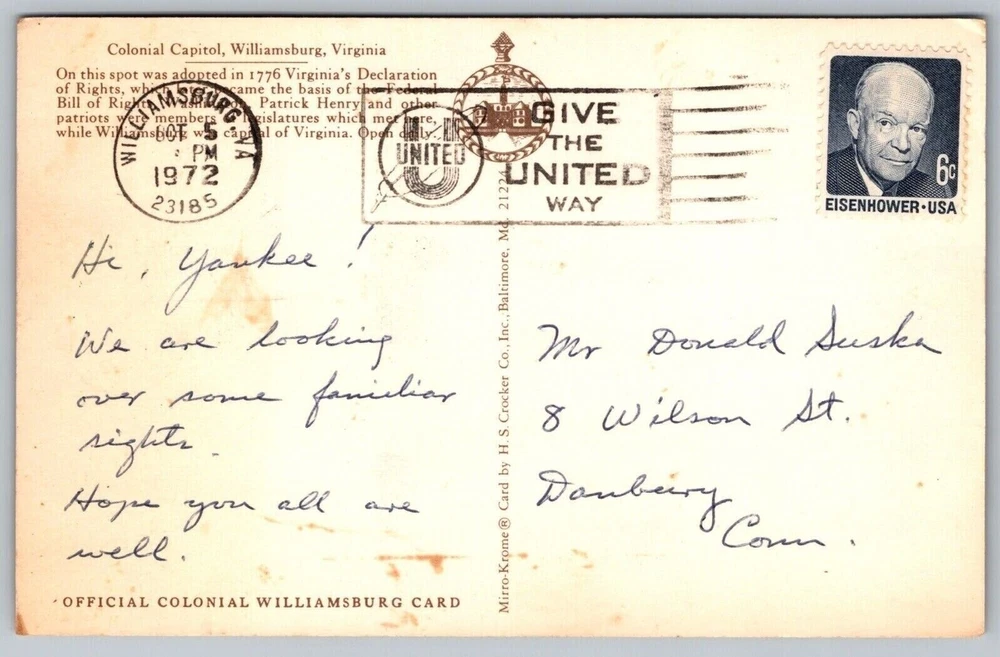 Colonial Capitol, Williamsburg, Virginia
On this spot was adopted in 1776 Virginia's Declaration
of Rights, which became the basis of the Federal
Bill of Rights. Patrick Henry and other
patriots were members legislatures which met here,
while Williamsburg was capital of Virginia. Open daily.
WILLIAMSBURG, VA
OCT 5
PM
1972
23185
UNITED
GIVE
THE
UNITED
WAY
6c
EISENHOWER · USA
Hi, Yankee!
We are looking
over some familiar
sights.
Hope you all are
well.
OFFICIAL COLONIAL WILLIAMSBURG CARD
Mirro-Krome® Card by H. S. Crocker Co., Inc., Baltimore, Md. 21224
Mr Donald Suska
8 Wilson St.
Danbury
Conn.